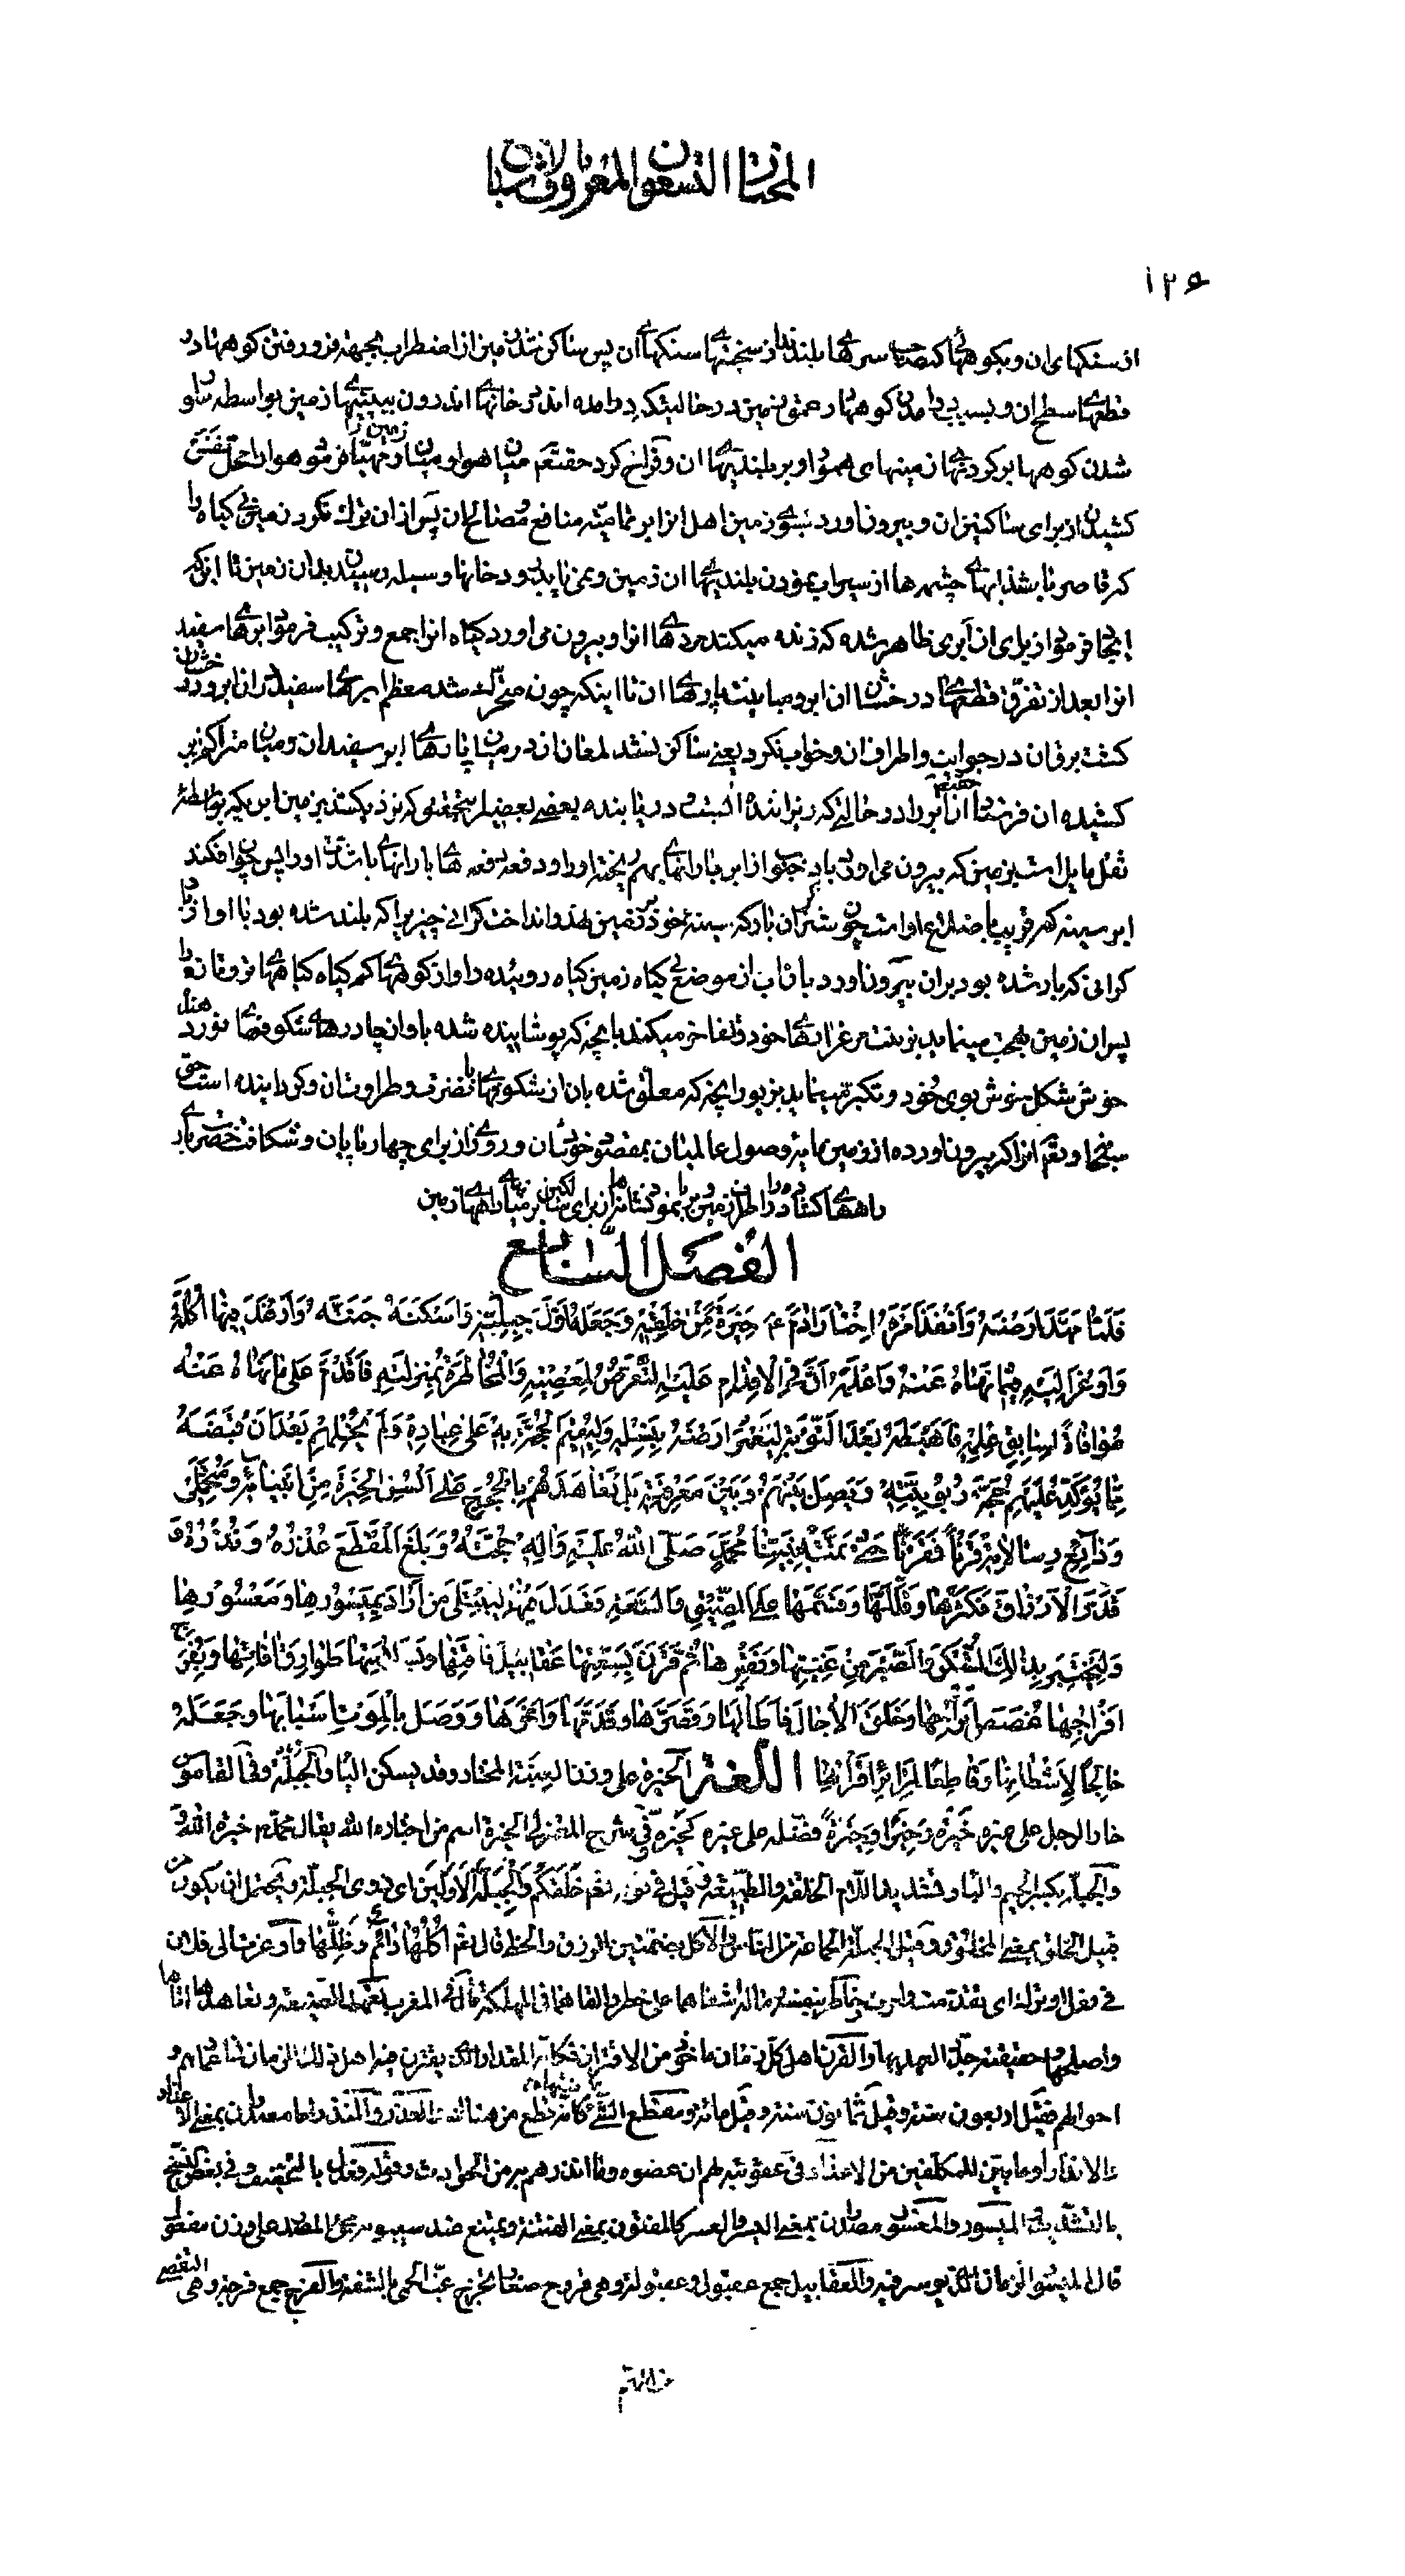 المختار التسعون المعروف بالاشباح
۱۲۶
از سنکهای ان و بکوههائی که صاحب سرهای بلندند از سختیهای سنکهای ان پس ساکن شد زمین از اضطراب بجهة فرو رفتن کوهها در
قطعهای سطح ان و بسبب در امدن کوهها در عمق زمین در حالیتکه در امده اند در خانهای اندرون بینیهای زمین بواسطه سوار
شدن کوهها بر کردنهای زمینهای هموار و بر بلندیهای ان و فراخ کرد حقتعم میان هوا و میان زمین را و مهیا فرمود هوا را محل تنفس
کشیدن از برای ساکنین ان و بیرون اورد بسوی زمین اهل انرا بر تمامیته منافع و مصالح ان پس از ان ترك نکرد زمین بی کیاه را
که قاصر باشد ابهای چشمه ها از سیراب نمودن بلندیهای ان زمین و نمی یابد رودخانها وسیله رسیدن بدان زمین تا اینکه
ایجاد فرمود از برای ان ابری ظاهر شده که زنده میکند مردهای انرا و بیرون می اورد کیاه انرا جمع و ترکیب فرمود ابرهای سفید
انرا بعد از تفرق قطعهای درخشان ان ابر و مباینت پارهای ان تا اینکه چون متحرك شد معظم ابرهای سفید در ان ابر و درخشان
کشت برق ان در جوانب و اطراف ان و خواب نکرد یعنی ساکن نشد لمعان ان در میان پارهای ابر سفید ان و میان متراکم بر
کشیده ان فرستاد حقتعم انابر را در حالتی که ریزانندۀ ابست و دریابنده بعضی بعضی را بتحقیق که نزدیکست بزمین ابر یکه بواسطه
ثقل مایل است بزمین که بیرون می اورد باد جنوب از ابر بارانهای بهم ریخته او را و دفعه دفعه های بارانهای با شدت او را پس چون افکند
ابر سینه که قریبست باضلاع او است چون شتر ان بار که سینه خود بزمین نهد و انداخت کرانی چیزیرا که بلند شده بود با او از بار
کرانی که بار شده بود بر ان بیرون اورد بان اب از موضع بی کیاه زمین کیاه روئیده را و از کوههای کم کیاه کیاههای تر و تازه را
پس ان زمین بهجت مینماید بزینت مرغزارهای خود و تفاخر میکند بانچه که پوشانیده شده باو ان چادرهای شکوفهای نورد هنده
خوش شکل خوش بوی خود و تکبر مینماید بزیور انچه که معلق شده بان از شکوفهای با نضرت و طراوت ان و کردانیده است حق
سبحانه و تعم انرا که بیرون اورده از زمین مایه وصول عالمیان بمقصود خودشان و روزی از برای چهارپایان و شکافت حضرت باری
راههای کشاده در اطراف زمین و بر پا نمود نشانها از برای سالکین بر میانهای راههای زمین
الفصل السابع
فلما مهد ارضه و انفذ امره اختار ادم ع خیرة من خلقه و جعله اول جبلته و اسکنه جنته و ارغد فیها اکله
و اوعز الیه فیما نهاه عنه و اعلمه ان فی الاقدام علیه التعرض لمعصیته و المخاطرة بمنزلته فاقدم علی ما نهاه عنه
موافاة لسابق علمه فاهبطه بعد التوبة لیعمر ارضه بنسله و لیقیم الحجة به علی عباده و لم یخلهم بعد ان قبضه
مما یؤکد علیهم حجة ربوبیته و یصل بینهم و بین معرفته بل تعاهدهم بالحجج علی السن الخیرة من انبیائه و متحملی
ودائع رسالاته قرنا فقرنا حتی تمت بنبینا محمد صلی الله علیه و اله حجته و بلغ المقطع عذره و نذره و
قدر الارزاق فکثرها و قللها و قسمها علی الضیق و السعة فعدل فیها لیبتلی من اراد بمیسورها و معسورها
و لیختبر بذلك الشکر و الصبر من غنیها و فقیرها ثم قرن بسعتها عقابیل فاقتها و بسلامتها طوارق افاتها و بفرج
افراجها غصص اتراحها و خلق الاجال فاطالها و قصرها و قدمها و اخرها و وصل بالموت اسبابها و جعله
خالجا لاشطانها و قاطعا لمرائر اقرانها اللغة الخیرة علی وزن العنبة المختار و قد یسکن الیاء و الجبلة و فی القاموس
خار الرجل علی غیره خیرة و خیرا و خیرة فضله علی غیره کخیره و فی شرح المعتزلی الخیرة اسم من اختاره الله یقال محمد ص خیرة الله
و الجبلة بکسر الجیم و الباء و تشدید اللام الخلقة و الطبیعة و قیل فی قوله تعم خلقکم و الجبلة الاولین ای ذوی الجبلة و یحتمل ان یکون من
قبیل الخلق بمعنی المخلوق و قیل الجبلة الجماعة من الناس و الاکل بضمتین الرزق و الحظ قال تعم اکلها دائم و ظلها و اوعز تعالی فلان
فی فعل او ترك ای تقدمت و امرت و خاطر بنفسه و ماله اشفاهما علی خطر و القاهما فی المهلکة قال فی المغرب تعهد الضیعة و تعاهدها اتاها
و اصلحها و حقیقته جدد العهد بها و القرن اهل کل زمان ماخوذ من الاقتران فکانه المقدار الذی یقترن فیه اهل ذلك الزمان فی اعمارهم و
احوالهم فقیل اربعون سنة و قیل ثمانون سنة و قیل مائة و مقطع الشئ منتهاه کانه قطع من هناك و العذر و النذر اما مصدران بمعنی الاعذار
و الانذار او ما بین للمکلفین من الاعذار فی عقوبته لهم ان عصوه و ما انذرهم به من الحوادث و قوله فعدل بالتخفیف و فی بعض النسخ
بالتشدید و المیسور و المعسور مصدران بمعنی الیسر و العسر کالمفتون بمعنی الفتنة و یمتنع عند سیبویه مجئ المصدر علی وزن مفعول
قال المیسور الزمان الذی یوسر فیه و العقابیل جمع عقبول و عقبولة و هی قروح صغار تخرج غب الحمی بالشفة و الفرج جمع فرجة و هی التفصی